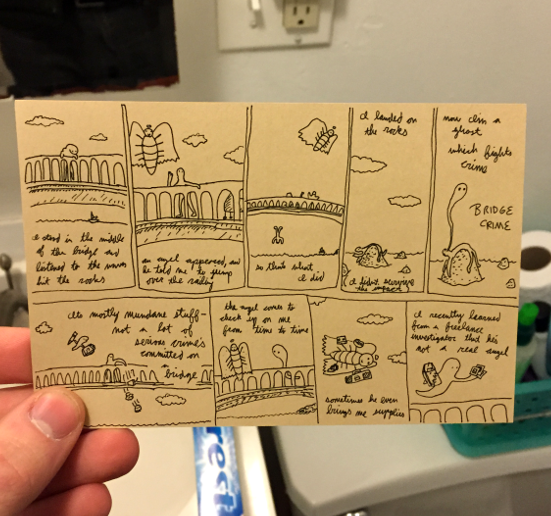 I stood in the middle
of the bridge and
listened to the waves
hit the rocks
an angel appeared, and
he told me to jump
over the railing
so that's what
I did
I landed on
the rocks
I didn't survive
the impact
now I'm a
ghost
which fights
crime
BRIDGE
CRIME
it's mostly mundane stuff-
not a lot of
serious crimes
committed on
a bridge
the angel comes to
check up on me
from time to time
sometimes he even
brings me supplies
I recently learned
from a freelance
investigator that he's
not a real angel
rest